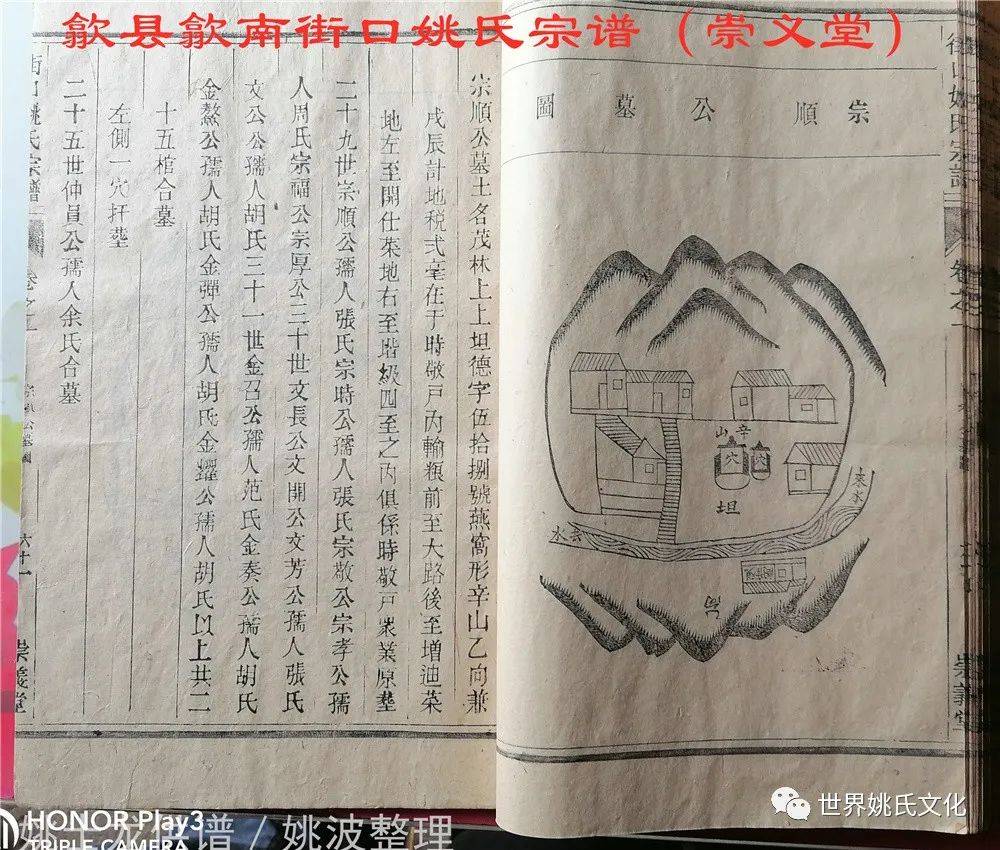 歙县歙南街口姚氏宗谱（崇义堂）
街口姚氏宗譜
卷之一
崇義堂
宗順公墓圖
辛山
穴
穴
坦
來水
去水
宗順公墓土名茂林上上坦德字伍拾捌號燕窩形辛山乙向兼
戌辰計地税弍毫在于時敬戸内輸粮前至大路後至增迪菜
地左至開仕菜地右至堦級四至之内俱係時敬戸衆業原塟
二十九世宗順公孺人張氏宗時公孺人張氏宗敬公宗孝公孺
人周氏宗福公宗厚公三十世文長公文開公文芳公孺人張氏
文公公孺人胡氏三十一世金召公孺人范氏金奏公孺人胡氏
金鰲公孺人胡氏金彈公孺人胡氏金耀公孺人胡氏以上共二
十五棺合墓
左側一穴扦塟
二十五世仲員公孺人余氏合墓
街口姚氏宗譜
卷之一
宗順公墓圖
六十一
崇義堂
世界姚氏文化
HONOR Play3
TRIPLE CAMERA
/ 姚波整理